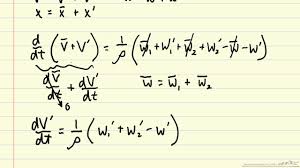 x = x̄ + x'
d/dt (V̄ + V') = 1/ρ (w̄₁ + w₁' + w̄₂ + w₂' - w̄ - w')
dV̄/dt + dV'/dt    w̄ = w̄₁ + w̄₂
0
dV'/dt = 1/ρ (w₁' + w₂' - w')